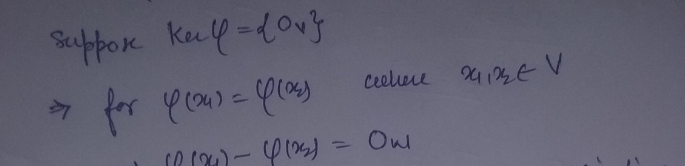 Suppose Ker φ = {0v}
⇒ for φ(x1) = φ(x2) where x1, x2 ∈ V
φ(x1) − φ(x2) = 0w